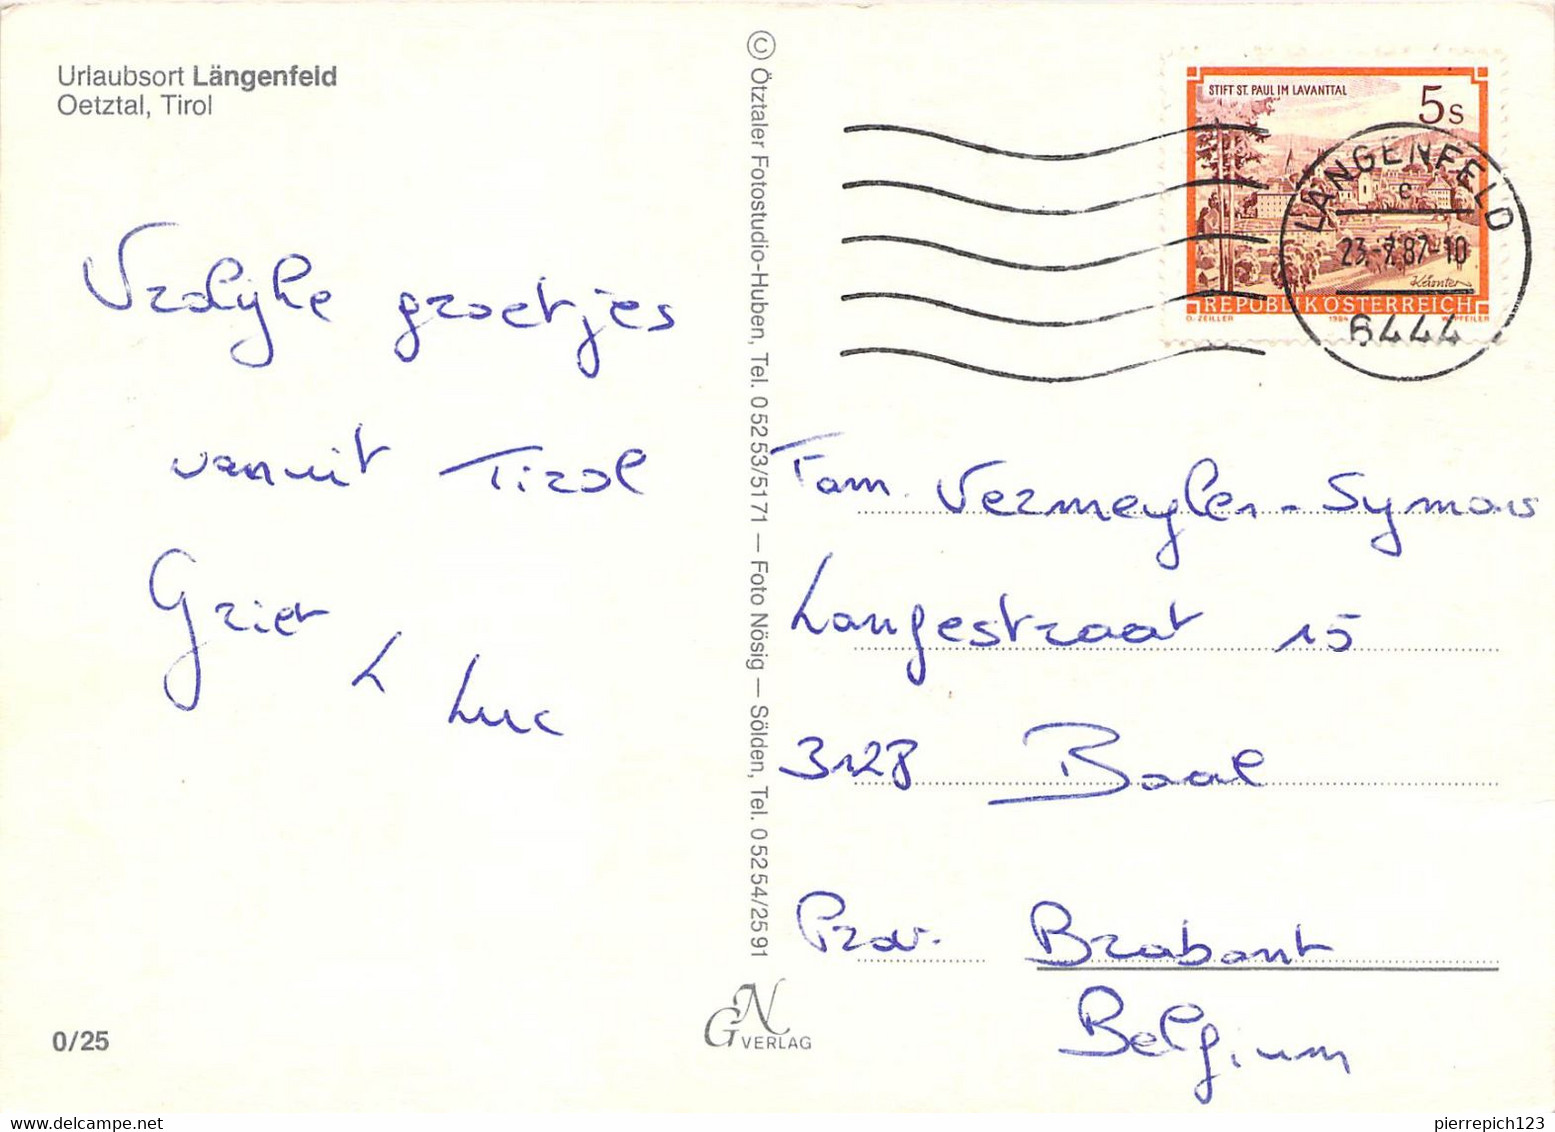 Urlaubsort Längenfeld
Oetztal, Tirol
Vrolijke groetjes
vanuit Tirol
Griet
&
Luc
0/25
© Ötztaler Fotostudio-Huben, Tel. 0 52 53/5171 — Foto Nösig — Sölden, Tel. 0 52 54/25 91
GN
VERLAG
STIFT ST. PAUL IM LAVANTTAL
5 S
Kärnten
REPUBLIK ÖSTERREICH
O. ZEILLER 1984 W. PFEILER
LÄNGENFELD
c
23.-7.87-10
6444
Fam. Vermeylen-Symons
Langestraat 15
3128 Baal
Prov. Brabant
Belgium
pierrepich123